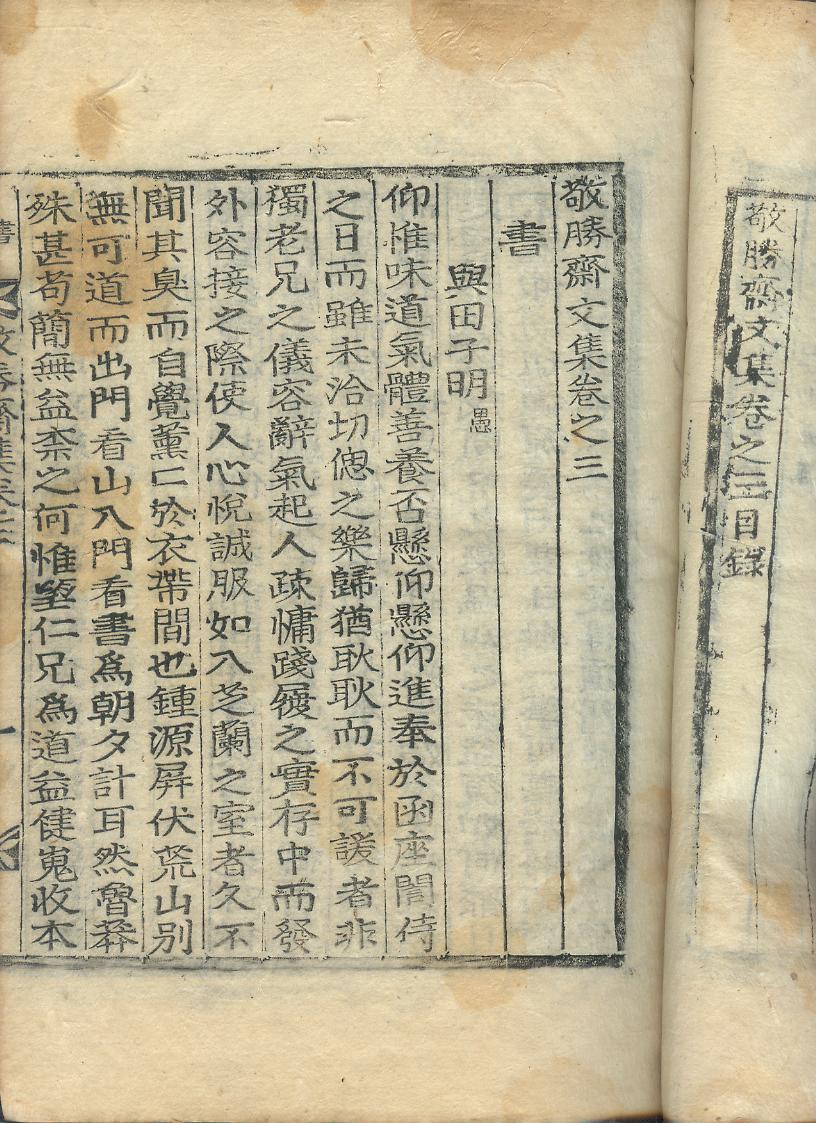 敬勝齋文集卷之三目錄
敬勝齋文集卷之三
書
與田子明愚
仰惟味道氣體善養否懸仰懸仰進奉於函座誾侍
之日而雖未洽切偲之樂歸猶耿耿而不可諼者非
獨老兄之儀容辭氣起人疎慵踐履之實存中而發
外容接之際使人心悅誠服如入芝蘭之室者久不
聞其臭而自覺薰仁於衣帶間也鍾源屛伏荒山別
無可道而出門看山入門看書爲朝夕計耳然魯莽
殊甚苟簡無益柰之何惟望仁兄爲道益健嵬收本
書